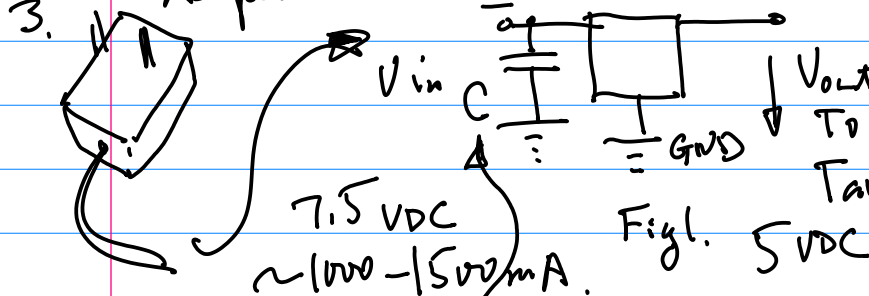 3.
Vin
C
GND
Vout
To
7.5 VDC
~1000-1500mA.
Fig1.
5 VDC